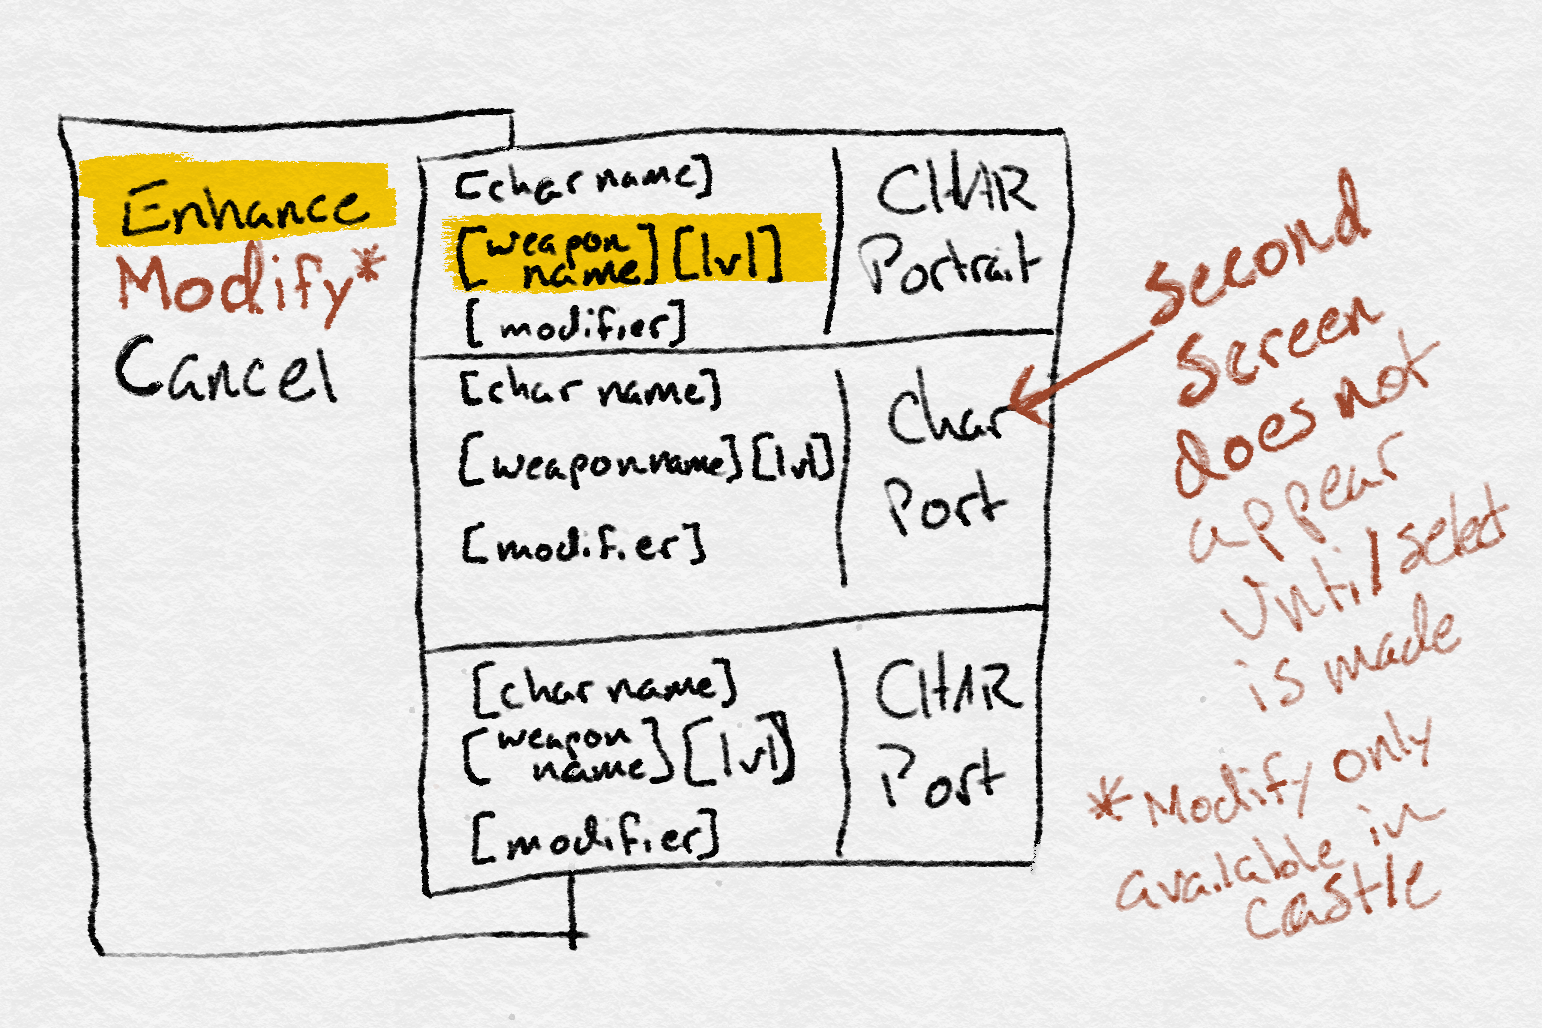 Enhance
Modify*
Cancel
[char name]
[weapon name] [lvl]
[modifier]
CHAR
Portrait
[char name]
[weapon name] [lvl]
[modifier]
Char
Port
[char name]
[weapon name] [lvl]
[modifier]
CHAR
Port
Second
Screen
does not
appear
Until select
is made
*Modify only
available in
castle